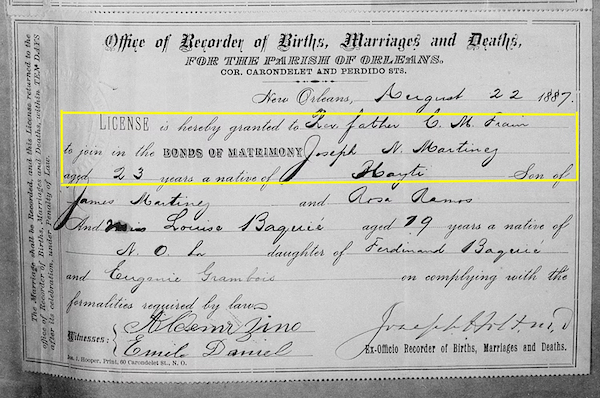 Office of Recorder of Births, Marriages and Deaths,
FOR THE PARISH OF ORLEANS.
COR. CARONDELET AND PERDIDO STS.
New Orleans, August 22 1887.
LICENSE is hereby granted to Rev. father C. M. Frain
to join in the BONDS OF MATRIMONY Joseph N. Martinez
aged 23 years a native of Hayti Son of
James Martinez and Rosa Ramos
And Miss Louise Baquié aged 19 years a native of
N. O. La daughter of Ferdinand Baquié
and Eugenie Grambois on complying with the
formalities required by law.
Witnesses:
Emile Daniel
Ex-Officio Recorder of Births, Marriages and Deaths.
Jas. J. Hooper, Print, 60 Carondelet St., N. O.
The Marriage shall be Recorded, and this License returned to the
office of Recorder of Births, Marriages and Deaths, within TEN DAYS
after its celebration, under Penalty of Law.